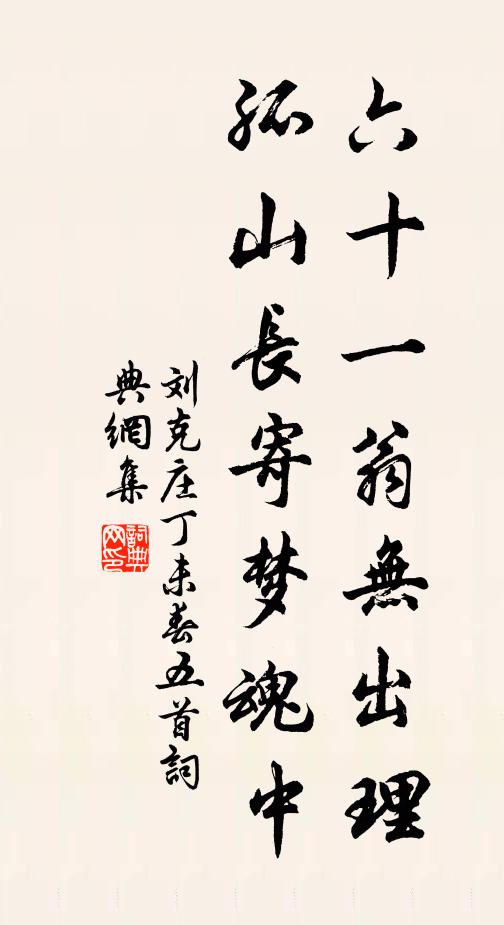 六十一翁無出理
孤山長寄梦魂中
刘克庄丁未春五首詞
典網集
詞典网印